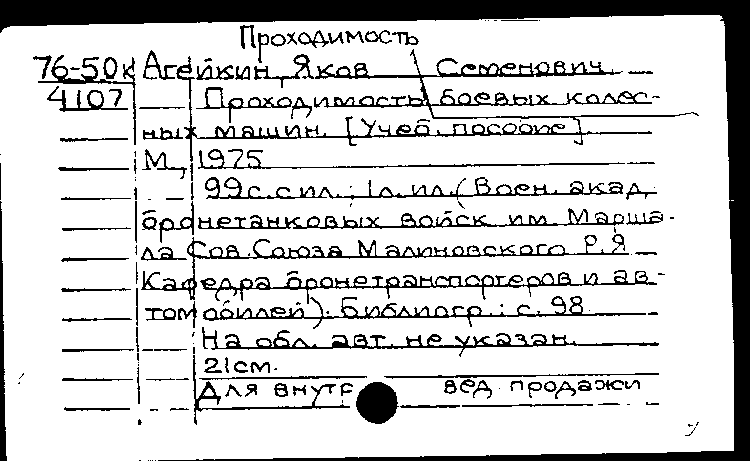 Проходимость
76-50к Агейкин, Яков Семенович.
4107 Проходимость боевых колес-
ных машин. [Учеб. пособие].
М., 1975
99с. с ил.; 1л. ил. (Воен. акад.
бронетанковых войск им Марша-
ла Сов. Союза Малиновского Р.Я
Кафедра бронетранспортеров и ав-
томобилей). Библиогр.: с. 98.
На обл. авт. не указан.
21см.
Для внутр вед. продажи